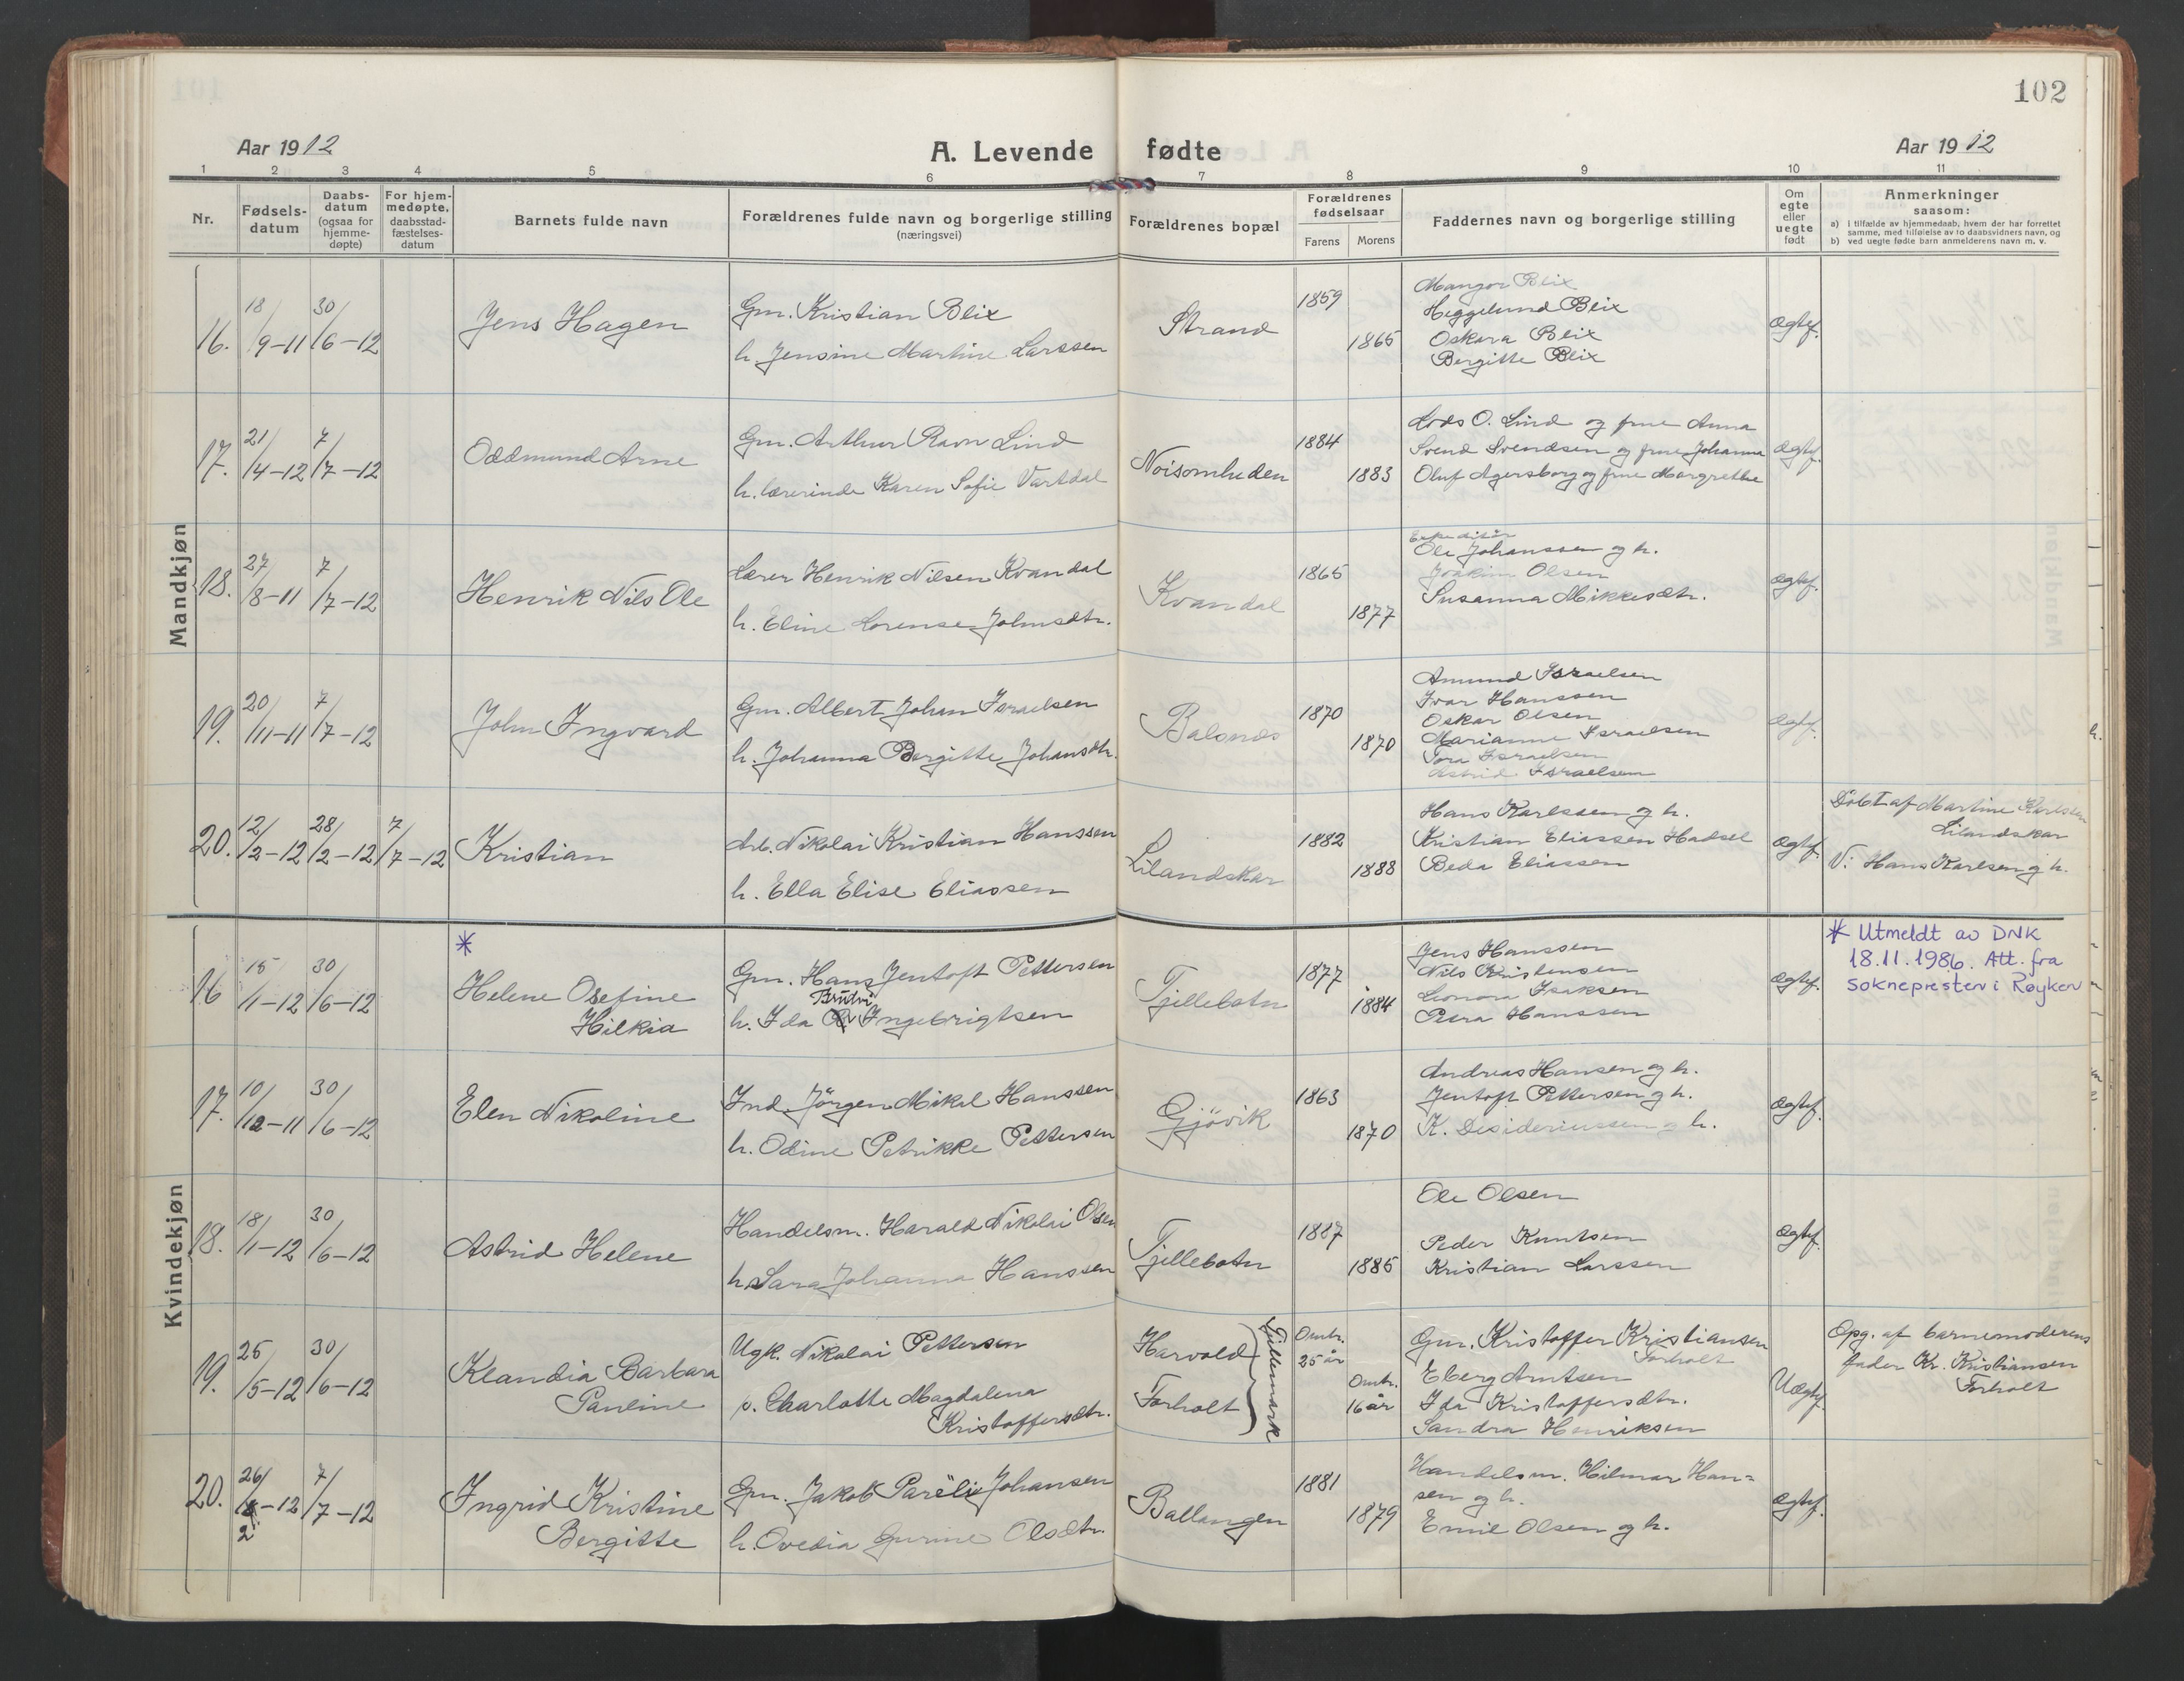 102
Aar 1912
A. Levende fødte
Aar 1912
1 2 3 4 5 6 7 8 9 10 11
Nr.
Fødsels-
datum
Daabs-
datum
(ogsaa for
hjemme-
døpte)
For hjem-
medøpte,
daabsstad-
fæstelses-
datum
Barnets fulde navn
Forældrenes fulde navn og borgerlige stilling
(næringsvei)
Forældrenes bopæl
Forældrenes
fødselsaar
Farens Morens
Faddernes navn og borgerlige stilling
Om
egte
eller
uegte
født
Anmerkninger
saasom:
a) i tilfælde av hjemmedaab, hvem der har forrettet
samme, med tilføielse av to daabsvidners navn, og
b) ved uegte fødte barn anmelderens navn m. v.
Mandkjøn
16. 18/9-11 30/6-12
Jens Hagen
Gm. Kristian Blix
h. Jensine Martine Larssen
Strand
1859
1865
Mangor Blix
Heggelund Blix
Oskara Blix
Bergitte Blix
Ægtef.
17. 21/4-12 7/7-12
Oddmund Arne
Gm. Arthur Ravn Lind
h. lærerinde Karen Sofie Vartdal
Noisomheden
1884
1883
Lods O. Lind og frue Anna
Svend Svendsen og frue Johanna
Oluf Agersborg og frue Margrethe
Ægtf.
18. 27/8-11 7/7-12
Henrik Nils Ole
Lærer Henrik Nilsen Kvandal
h. Eline Lorense Johnsdtr.
Kvandal
1865
1877
Ole Johanssen og h.
Joakim Olsen
Susanna Mikkesdtr.
Ægtf.
19. 20/11-11 7/7-12
John Ingvard
Gm. Albert Johan Israelsen
h. Johanna Bergitte Johansdtr.
Balsnes
1870
1870
Amund Israelsen
Ivar Hanssen
Oskar Olsen
Marianne Israelsen
Tora Israelsen
Astrid Israelsen
Ægtf.
20. 12/2-12 28/2-12 7/7-12
Kristian
Arb. Nikolai Kristian Hanssen
h. Ella Elise Eliassen
Lilandskar
1882
1888
Hans Karlssen og h.
Kristian Eliassen Hadsel
Beda Eliassen
Ægtf.
Döbt af Martine Karlssen
Lilandskar
V: Hans Karlsen og h.
Kvindekjøn
16 15/1-12 30/6-12
*
Helene Osefine
Hilkia
Gm. Hans Jentoft Pettersen
Brudvi
h. Ida Ingebrigtsen
Tjellebotn
1877
1884
Jens Hanssen
Nils Kristensen
Leonora Isaksen
Petra Hanssen
Ægtf.
* Utmeldt av DNK
18.11.1986. Att. fra
soknepresten i Røyken
17. 10/12-11 30/6-12
Elen Nikoline
Ind. Jörgen Mikal Hanssen
h. Odine Petrikke Pettersen
Gjövik
1863
1870
Andreas Hansen og h.
Jentoft Pettersen og h.
K. Desideriussen og h.
Ægtf.
18. 18/1-12 30/6-12
Astrid Helene
Handelsm. Harald Nikolai Olsen
h. Sara Johanna Hanssen
Tjellebotn
1887
1885
Ole Olsen
Peder Knutsen
Kristian Larssen
Ægtf.
19. 25/5-12 30/6-12
Klandia Barbara
Pauline
Ugk. Nikolai Pettersen
p. Charlotte Magdalena
Kristoffersdtr.
Harvold
Forholt
Tjellemark
Omtr.
25 år
Omtr.
16 år
Gm. Kristoffer Kristiansen
Forholt
Eberg Arntsen
Ida Kristoffersdtr.
Sandra Henriksen
Uægtf.
Opg. af barnemoderens
fader Kr. Kristiansen
Forholt
20. 26/2-12 7/7-12
Ingrid Kristine
Bergitte
Gm. Jakob Parelie Johansen
h. Ovedia Gurine Olsdtr.
Ballangen
1881
1879
Handelsm. Hilmar Han=
sen og h.
Emil Olsen og h.
Ægtf.